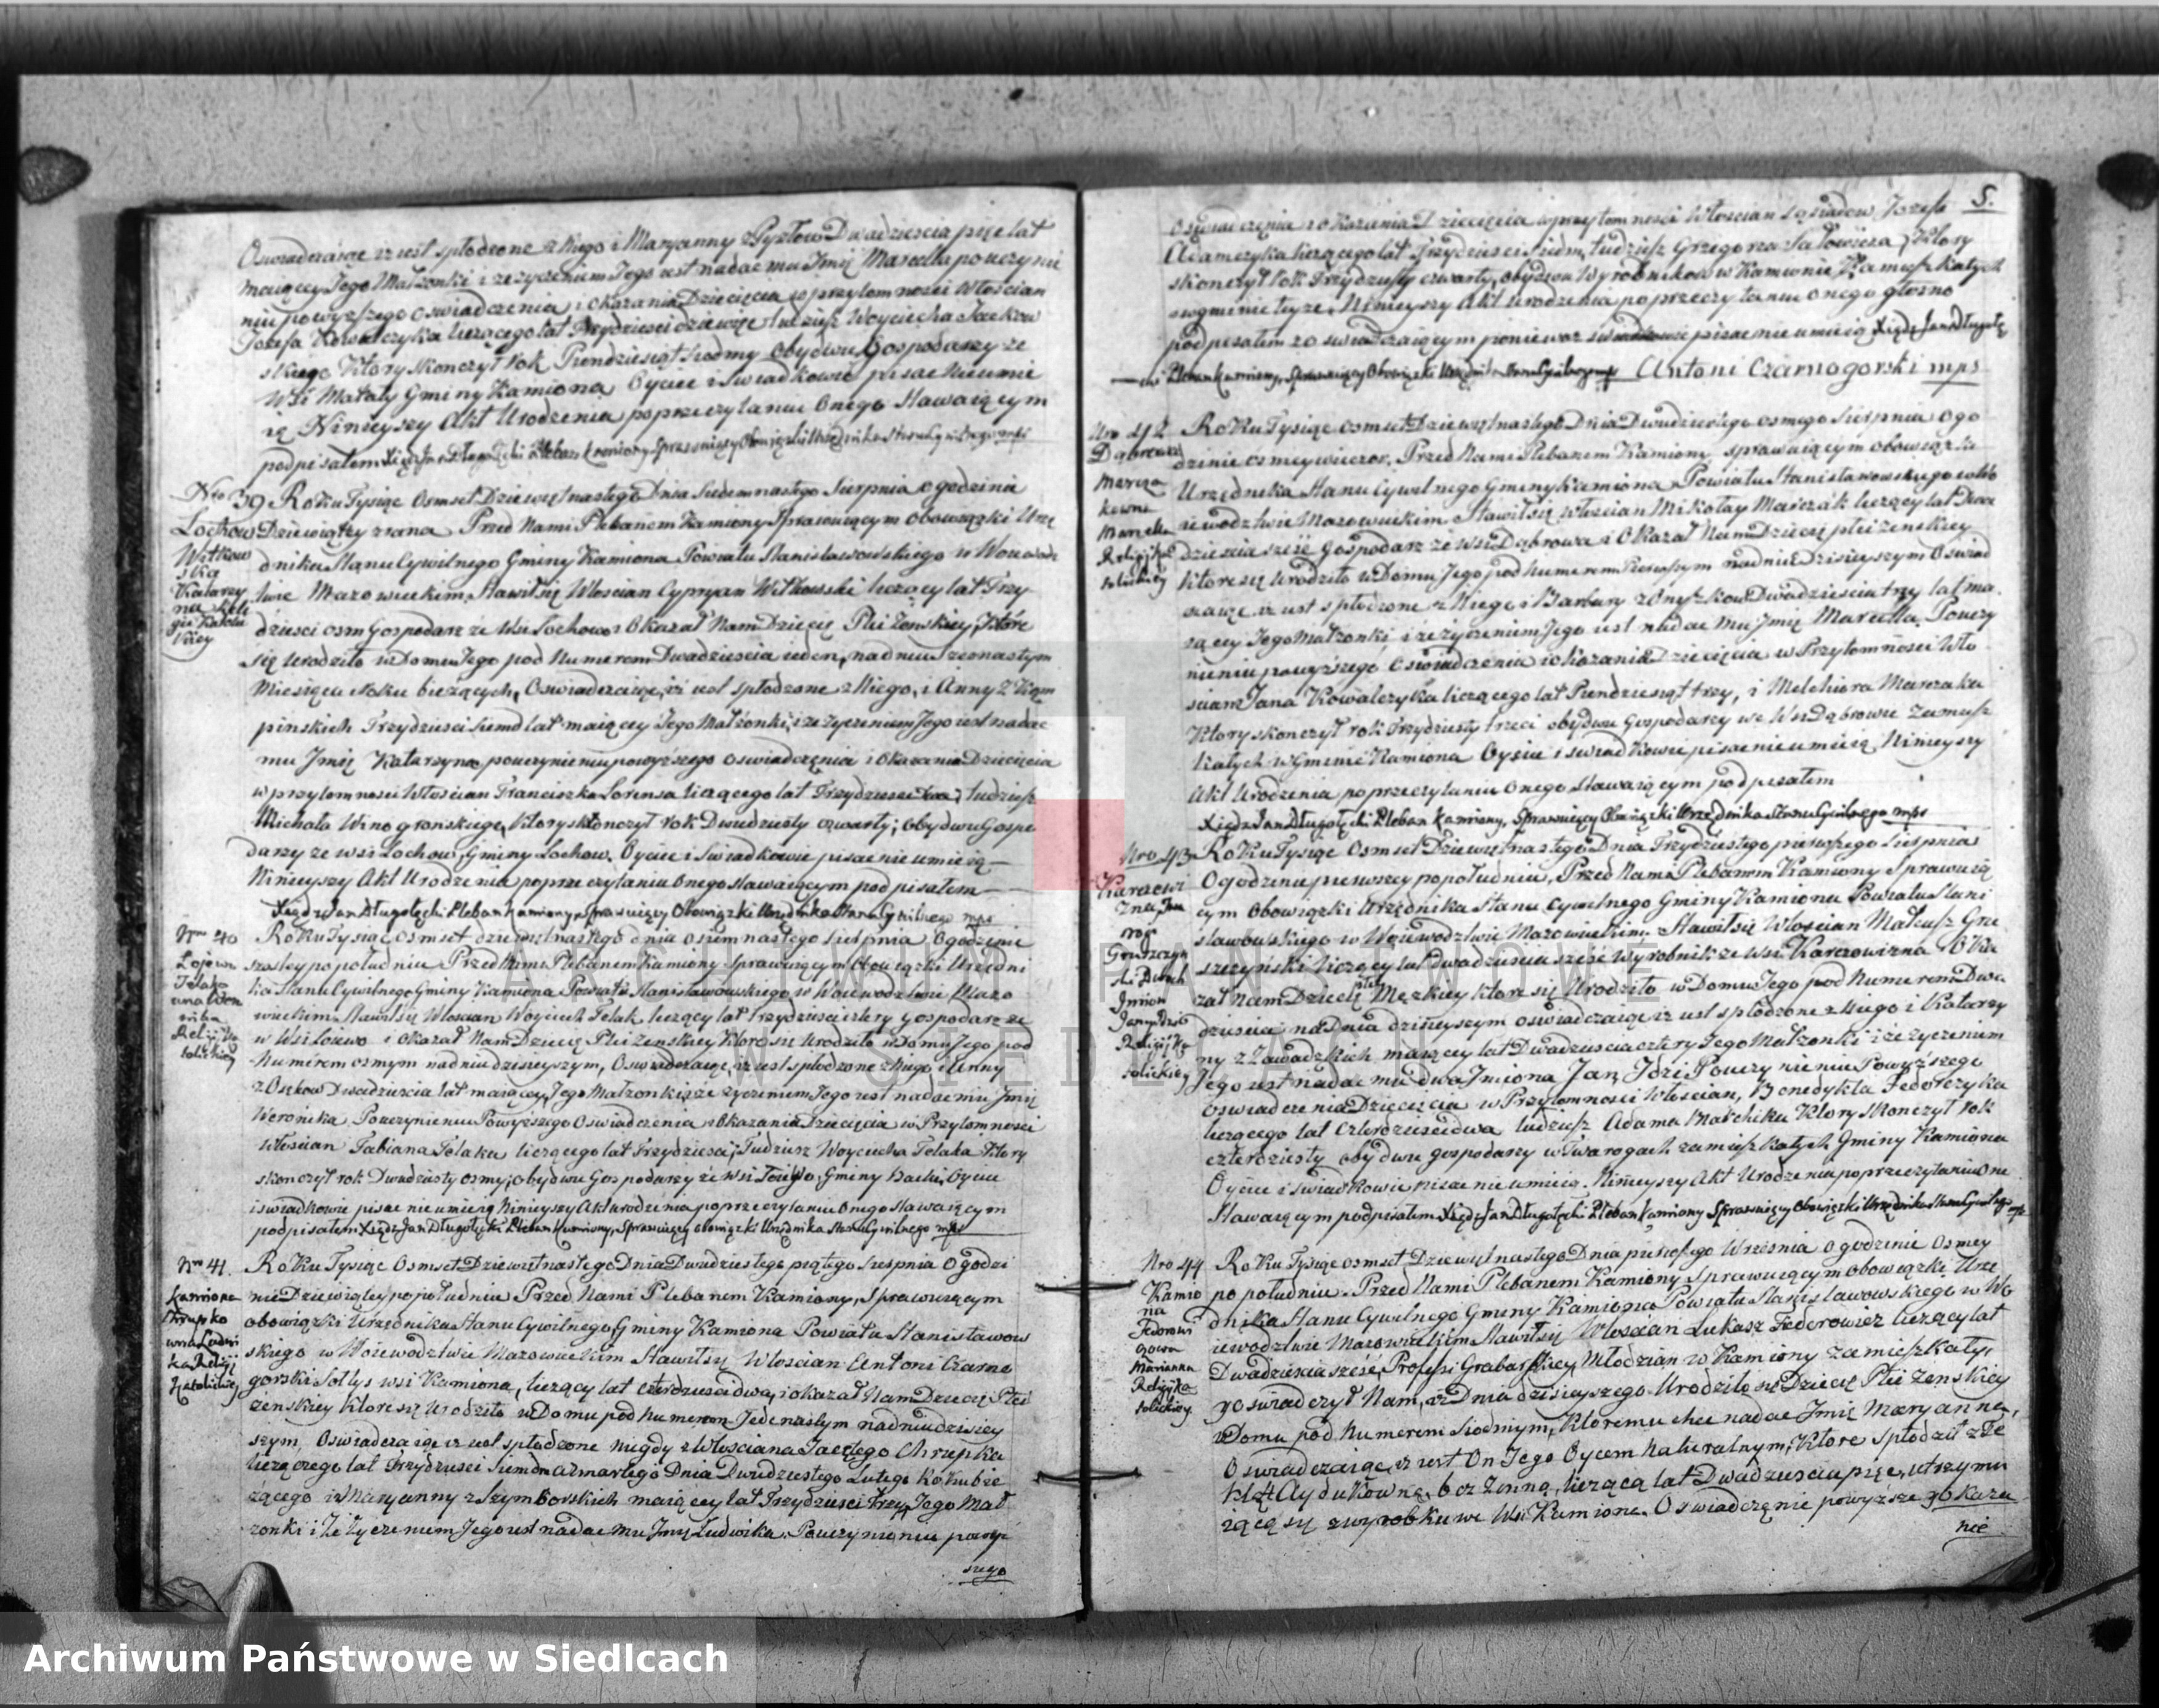 Oswiadczaiąc iż iest spłodzone z Niego i Maryanny z Pyzlow Dwadziescia pięc lat
maiącey Jego Małżonki i że życzeniem Jego iest nadac mu Jmię Marcella po uczynie
niu powyższego oswiadczenia i okazania Dziecięcia w przytomnosci Włoscian
Jozefa Kowalczyka liczącego lat Trzydziesci dziewięc tudzież Woyciecha Jackow
skiego Ktory skonczył rok Piendziesiąt siodmy obydwu Gospodarzy ze
Wsi Mataly Gminy Kamiona Oyciec i Swiadkowie pisac nieumie
ią Ninieyszy Akt Urodzenia po przeczytaniu Onego Stawaiącym
podpisałem Xiądz Jan Długołęcki Pleban Kamiony Sprawuiący Obowiązki Urzędnika Stanu Cywilnego mpr
Nro 39 Roku Tysiąc Osmset Dziewiętnastego Dnia Siedemnastego Sierpnia o godzinie
Łochow Dziewiątey zrana Przed Nami Plebanem Kamiony Sprawuiącym obowiązki Urzę
Witkow
ska
Katarzy
na Reli
gii Katoli
kiey
dnika Stanu Cywilnego Gminy Kamiona Powiatu Stanisławowskiego w Woiewodz
twie Mazowieckim Stawił się Włoscian Cypryan Witkowski liczący lat Trzy
dziesci osm Gospodarz ze Wsi Łochow i Okazał Nam Dziecię Płci Zenskiey, Ktore
się urodziło w Domu Jego pod Numerem Dwadziescia ieden, na dniu Szesnastym
Miesiąca Roku bieżących, Oswiadczaiąc, iż iest spłodzone z Niego, i Anny z Kąm
pinskich Trzydziesci Siedm lat maiącey Jego Małżonki, i że życzeniem Jego iest nadac
mu Jmię Katarzyna po uczynieniu powyższego oswiadczenia i Okazania Dziecięcia
w przytomnosci Włoscian Franciszka Lorensa liczącego lat Trzydziesci tudzież
Michała Winogronskiego, Ktory skonczył rok Dwudziesty czwarty; obydwu Gospo
darzy ze wsi Łochow, Gminy Łochow. Oyciec i Swiadkowie pisac nie umieią
Ninieyszy Akt Urodzenia po przeczytaniu Onego Stawaiącym podpisałem
Xiądz Jan Długołęcki Pleban Kamiony, Sprawuiący Obowiązki Urzędnika Stanu Cywilnego mpr
Nro 40 Roku Tysiąc Osmset dziewiętnastego dnia osiemnastego Sierpnia o godzinie
Łojew
Telako
wna Wero
nika
Religii Ka
tolickiey
szostey po południu Przed Nami Plebanem Kamiony Sprawuiącym Obowiązki Urzędni
ka Stanu Cywilnego Gminy Kamiona Powiatu Stanisławowskiego w Woiewodztwie Mazo
wieckim Stawił się Włoscian Woyciech Telak liczący lat Trzydziesci cztery Gospodarz ze
w Wsi Łoiewo i okazał Nam Dziecię Płci Zenskiey Ktore się urodziło w Domu Jego pod
Numerem osmym na dniu dzisieyszym, Oswiadczaiąc, iż iest spłodzone z Niego i Anny
z Osękow Dwadziescia lat maiącey Jego Małzonki, i że życzeniem Jego iest nadac mu Jmię
Weronika Po uczynieniu Powyższego Oswiadczenia i Okazania Dziecięcia w Przytomnosci
Włoscian Fabiana Telaka liczącego lat Trzydziesci; Tudziesz Woyciecha Telaka Ktory
skonczył rok Dwudziesty osmy; obydwu Gospodarzy ze Wsi Łoiewo, Gminy Oyciec
i swiadkowie pisac nie umieią Ninieyszy Akt urodzenia po przeczytaniu Onego Stawaiącym
podpisałem Xiądz Jan Długołęcki Pleban Kamiony, Sprawuiący Obowiązki Urzędnika Stanu Cywilnego mpr
Nro 41. Roku Tysiąc Osmset Dziewiętnastego Dnia Dwudziestego piątego Sierpnia o godzi
Kamiona
Chrupko
wna Ludwi
ka Religij
Katolickiey
nie Dziewiątey po południu Przed Nami Plebanem Kamiony, Sprawuiącym
obowiązki Urzędnika Stanu Cywilnego Gminy Kamiona Powiatu Stanisławow
skiego w Woiewodztwie Mazowieckim Stawił się Włoscian Antoni Czarno
gorski Sołtys wsi Kamiona, liczący lat czterdziesci dwa, i okazał Nam Dziecię Płci
żenskiey Ktore się Urodziło w Domu pod Numerem Jedenastym na dniu dzisiey
szym, Oswiadczaiąc iż iest spłodzone niegdy z Włosciana Jacętego Chrupka
liczącego lat Trzydziesci Siedm a zmarłego Dnia Dwudziestego Lutego Roku bie
żącego i z Maryanny z Szymborskich maiącey lat Trzydziesci Trzy, Jego Mał
zonki i Ze Zyczeniem Jego iest nadac mu Jmię Ludwika. Po uczynieniu powyż
szego
5.
oswiadczenia i okazania Dziecięcia w przytomnosci Włoscian sąsiadow, Jozefa
Adamczyka liczącego lat Trzydziesci siedm, tudzież Grzegorza Sałowicza, Ktory
skonczył rok Trzydziesty czwarty, obydwu Wyrobnikow w Kamionie Zamieszkałych
w gminie teyze. Ninieyszy Akt urodzenia po przeczytaniu onego głosno
podpisałem zo swiadczaiącym poniewaz swiadkowie pisac nie umieią Xiądz Jan Długołę
cki Pleban Kamiony, Sprawuiący Obowiązki Urzędnika Stanu Cywilnego mpr Antoni Czarnogorski mpr
Nro 42 Roku Tysiąc osmset Dziewiętnastego Dnia Dwudziestego osmego Sierpnia o go
Dąbrowa
Marcza
kowna
Marcella
Religij Ka
tolickiey
dzinie osmey wieczor, Przed Nami Plebanem Kamiony sprawuiącym obowiązki
Urzędnika Stanu Cywilnego Gminy Kamiona Powiatu Stanisławowskiego w Wo
iewodztwie Mazowieckim Stawił się włoscian Mikołay Marczak liczący lat Dwa
dziescia sześć Gospodarz ze wsi Dąbrowa i Okazał Nam Dziecię płci żenskiey
Ktore się urodziło w Domu Jego pod Numerem Pierwszym na dniu Dzisieyszym Oswiad
czaiąc iż iest spłodzone z Niego i Barbary z Onyszkow Dwadziescia trzy lat ma
iącey Jego Małżonki, i że życzeniem Jego iest nadac Mu Jmię Marcella, Po uczy
nieniu powyższego Oswiadczenia i okazania Dziecięcia w Przytomnosci Wło
scian Jana Kowalczyka liczącego lat Piendziesiąt trzy, i Melchiora Marczaka
Ktory skonczył rok Trzydziesty trzeci obydwu Gospodarzy we Wsi Dąbrowie Zamiesz
kałych w Gminie Kamiona Oyciec i swiadkowie pisac nie umieią Ninieyszy
Akt Urodzenia po przeczytaniu Onego Stawaiącym podpisałem
Xiądz Jan Długołęcki Pleban Kamiony, Sprawuiący Obowiązki Urzędnika Stanu Cywilnego mpr
Nro 43 Roku Tysiąc Osmset Dziewiętnastego Dnia Trzydziestego pierwszego Sierpnia
Karczewi
zna
Gruszczyn
ski Dwoch
Jmion
Jan Jdzi
Religij Ka
tolickiey
O godzinie pierwszey popołudniu, Przed Nami Plebanem Kamiony Sprawuią
cym Obowiązki Urzędnika Stanu Cywilnego Gminy Kamiona Powiatu Stani
sławowskiego w Woiewodztwie Mazowieckim Stawił się Włoscian Mateusz Gru
szczynski liczący lat dwadziescia sześć wyrobnik ze wsi Karczewizna i Oka
zał Nam Dziecię płci Męzkiey ktore się Urodziło w Domu Jego pod Numerem Dwa
dziescia na Dniu dzisieyszym oswiadczaiąc iż iest spłodzone z Niego i Katarzy
ny z Zawadzkich maiącey lat Dwadziescia cztery Jego Małżonki i że życzeniem
Jego iest nadac mu dwa Jmiona Jan, Jdzi Po uczynieniu Powyższego
oswiadczenia Dziecięcia w Przytomnosci Włoscian, Benedykta Fedorczyka
liczącego lat Czterdziesci dwa tudziesz Adama Marchika Ktory skonczył rok
czterdziesty obydwu gospodarzy w Twarogach zamieszkałych Gminy Kamiona
Oyciec i swiadkowie pisac nie umieią. Ninieyszy Akt Urodzenia po przeczytaniu One
Stawaiącym podpisałem Xiądz Jan Długołęcki Pleban Kamiony Sprawuiący Obowiązki Urzędnika Stanu Cywilnego mpr
Nro 44 Roku Tysiąc osmset Dziewiętnastego Dnia pierwszego Września o godzinie Osmey
Kamio
na
Fedorowi
czowa
Marianna
Religij Ka
tolickiey
po południu. Przed Nami Plebanem Kamiony Sprawuiącym obowiązki Urzę
dnika Stanu Cywilnego Gminy Kamiona Powiatu Stanisławowskiego w Wo
iewodztwie Mazowieckim Stawił się Włoscian Lukasz Federowicz liczący lat
Dwadziescia sześć, Professi Grabarskiey, Młodzian w Kamiony zamieszkały,
y oswiadczył Nam, iż Dnia dzisieyszego Urodziło się Dziecię Płci żenskiey
w Domu pod Numerem Siodmym, Ktoremu chce nadac Jmię Maryanna,
Oswiadczaiąc, iż iest On Jego Oycem Naturalnym, Ktore Spłodził z Te
klą Haydukowną, bezżenną, liczącą lat Dwadziescia pięc, utrzymu
iącą się z wyrobku we Wsi Kamiona. Oswiadczenie powyższe y okaza
nie
ARCHIWUM PAŃSTWOWE
W SIEDLCACH
Archiwum Państwowe w Siedlcach